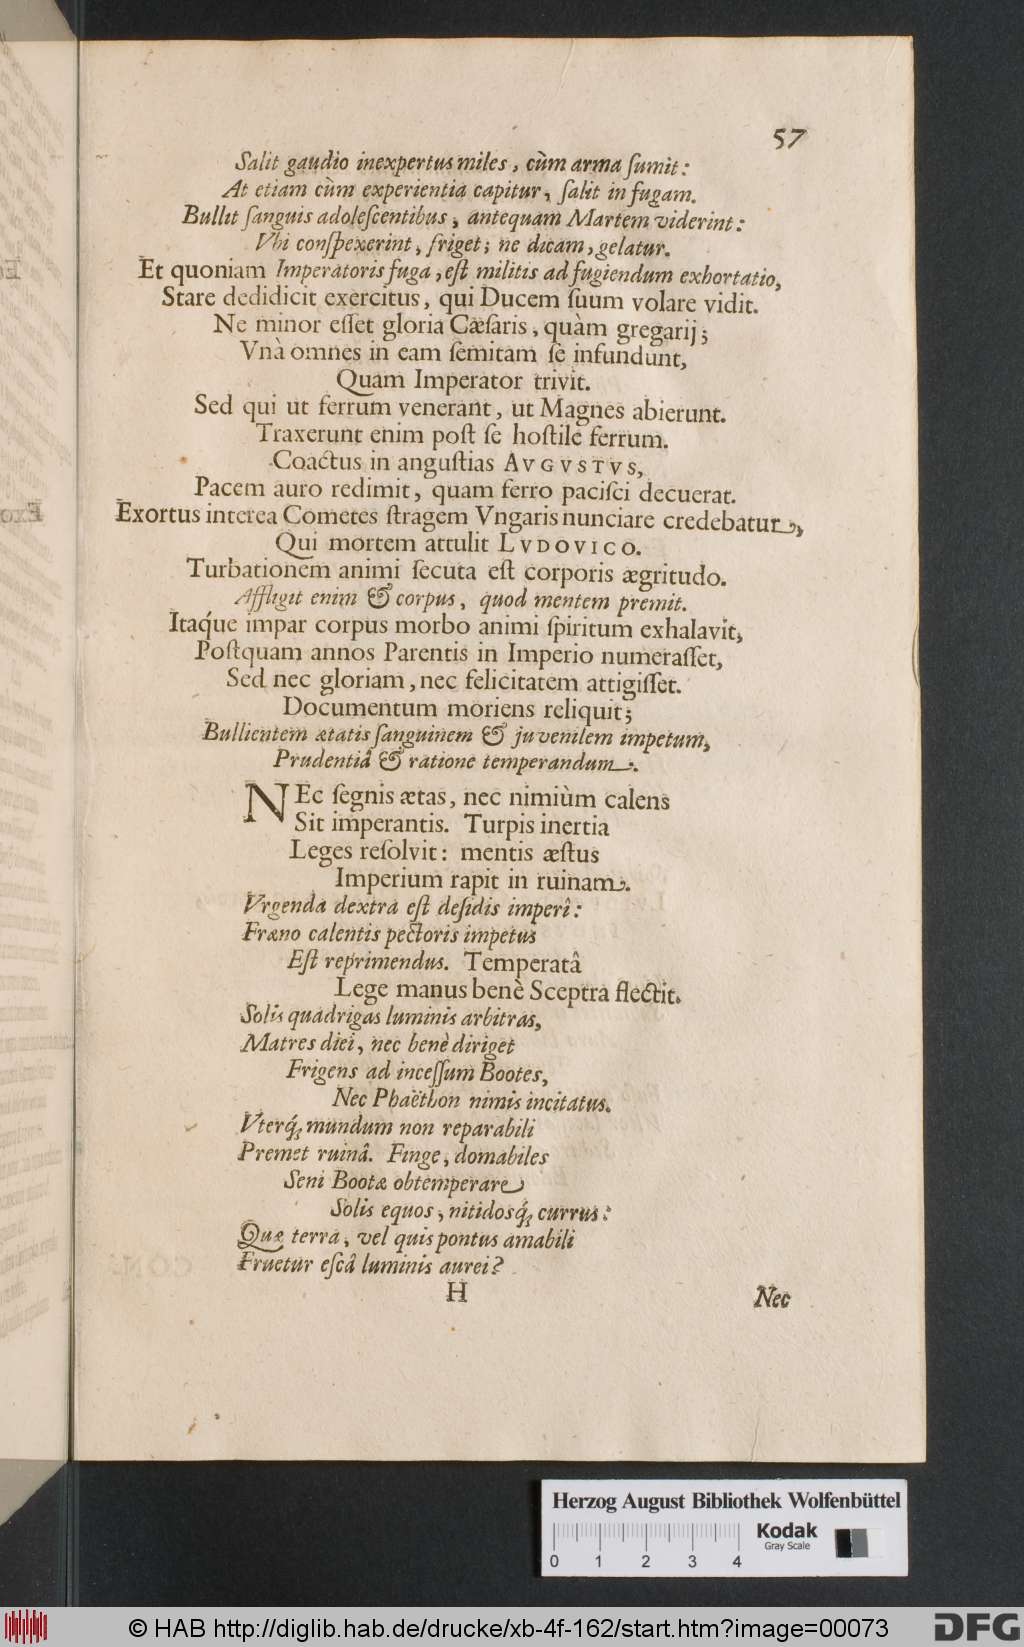 57
Salit gaudio inexpertus miles, cùm arma ſumit:
At etiam cùm experientia capitur, ſalit in fugam.
Bullit ſanguis adoleſcentibus, antequam Martem viderint:
Vbi conſpexerint, friget; ne dicam, gelatur.
Et quoniam Imperatoris fuga, eſt militis ad fugiendum exhortatio,
Stare dedidicit exercitus, qui Ducem ſuum volare vidit.
Ne minor eſſet gloria Cæſaris, quàm gregarij;
Vnà omnes in eam ſemitam ſe infundunt,
Quam Imperator trivit.
Sed qui ut ferrum venerant, ut Magnes abierunt.
Traxerunt enim poſt ſe hoſtile ferrum.
Coactus in anguſtias AVGVSTVS,
Pacem auro redimit, quam ferro paciſci decuerat.
Exortus interea Cometes ſtragem Vngaris nunciare credebatur,
Qui mortem attulit LVDOVICO.
Turbationem animi ſecuta eſt corporis ægritudo.
Affligit enim & corpus, quod mentem premit.
Itaq́ue impar corpus morbo animi ſpiritum exhalavit,
Poſtquam annos Parentis in Imperio numeraſſet,
Sed nec gloriam, nec felicitatem attigiſſet.
Documentum moriens reliquit;
Bullientem ætatis ſanguinem & juvenilem impetum,
Prudentiâ & ratione temperandum.
NEc ſegnis ætas, nec nimiùm calens
Sit imperantis. Turpis inertia
Leges reſolvit: mentis æſtus
Imperium rapit in ruinam.
Vrgenda dextra eſt deſidis imperî:
Fræno calentis pectoris impetus
Eſt reprimendus. Temperatâ
Lege manus benè Sceptra flectit.
Solis quadrigas luminis arbitras,
Matres diei, nec benè diriget
Frigens ad inceſſum Bootes,
Nec Phaëthon nimis incitatus.
Vterq́; mundum non reparabili
Premet ruinâ. Finge, domabiles
Seni Bootæ obtemperare
Solis equos, nitidosq́; currus:
Quæ terra, vel quis pontus amabili
Fruetur eſcâ luminis aurei?
H
Nec
Herzog August Bibliothek Wolfenbüttel
0 1 2 3 4
Kodak
Gray Scale
© HAB http://diglib.hab.de/drucke/xb-4f-162/start.htm?image=00073
DFG